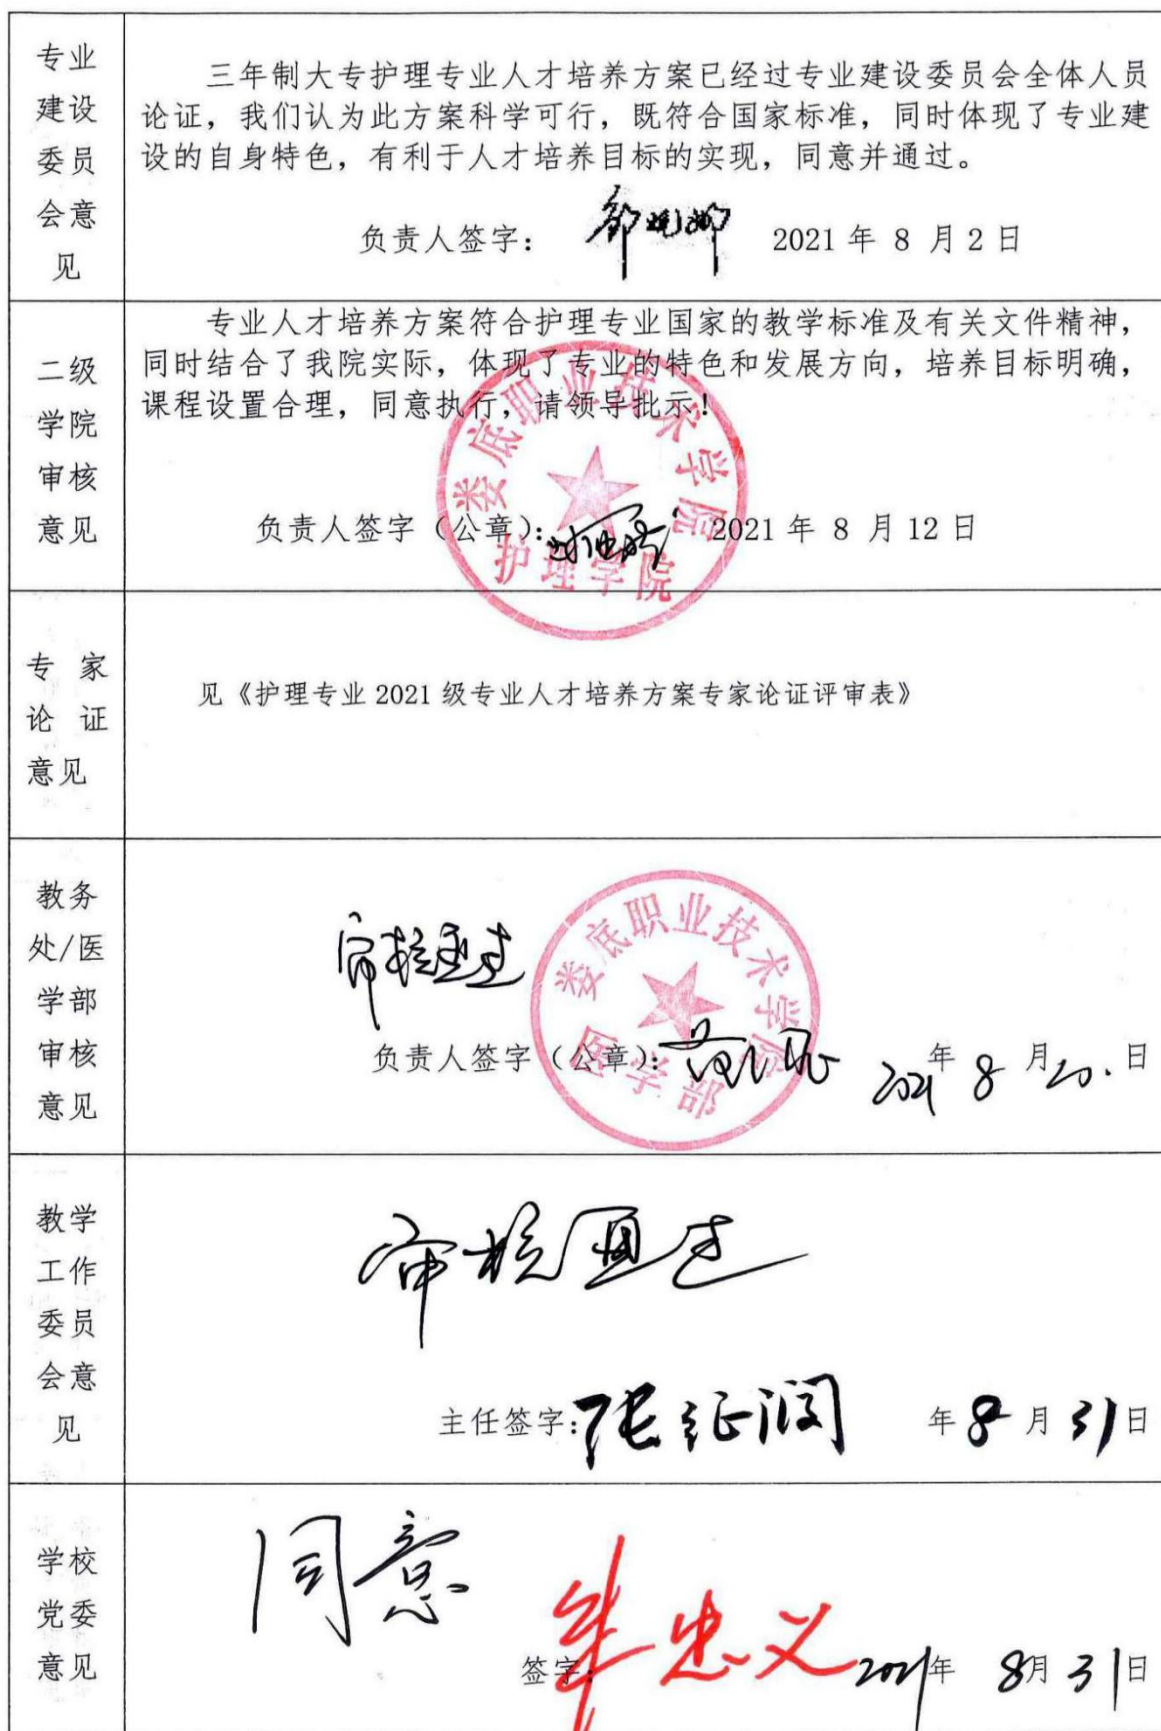 专业
建设
委员
会意
见
三年制大专护理专业人才培养方案已经过专业建设委员会全体人员
论证，我们认为此方案科学可行，既符合国家标准，同时体现了专业建
设的自身特色，有利于人才培养目标的实现，同意并通过。
负责人签字： 2021 年 8 月 2 日
二级
学院
审核
意见
专业人才培养方案符合护理专业国家的教学标准及有关文件精神，
同时结合了我院实际，体现了专业的特色和发展方向，培养目标明确，
课程设置合理，同意执行，请领导批示！
娄底职业技术学院
负责人签字（公章）： 2021 年 8 月 12 日
护理学院
专 家
论 证
意见
见《护理专业 2021 级专业人才培养方案专家论证评审表》
教务
处/医
学部
审核
意见
审核通过
娄底职业技术学院
负责人签字（公章）： 2021 年 8 月 20. 日
医学部
教学
工作
委员
会意
见
审核通过
主任签字： 年 8 月 31 日
学校
党委
意见
同意
签字： 2021 年 8 月 31 日